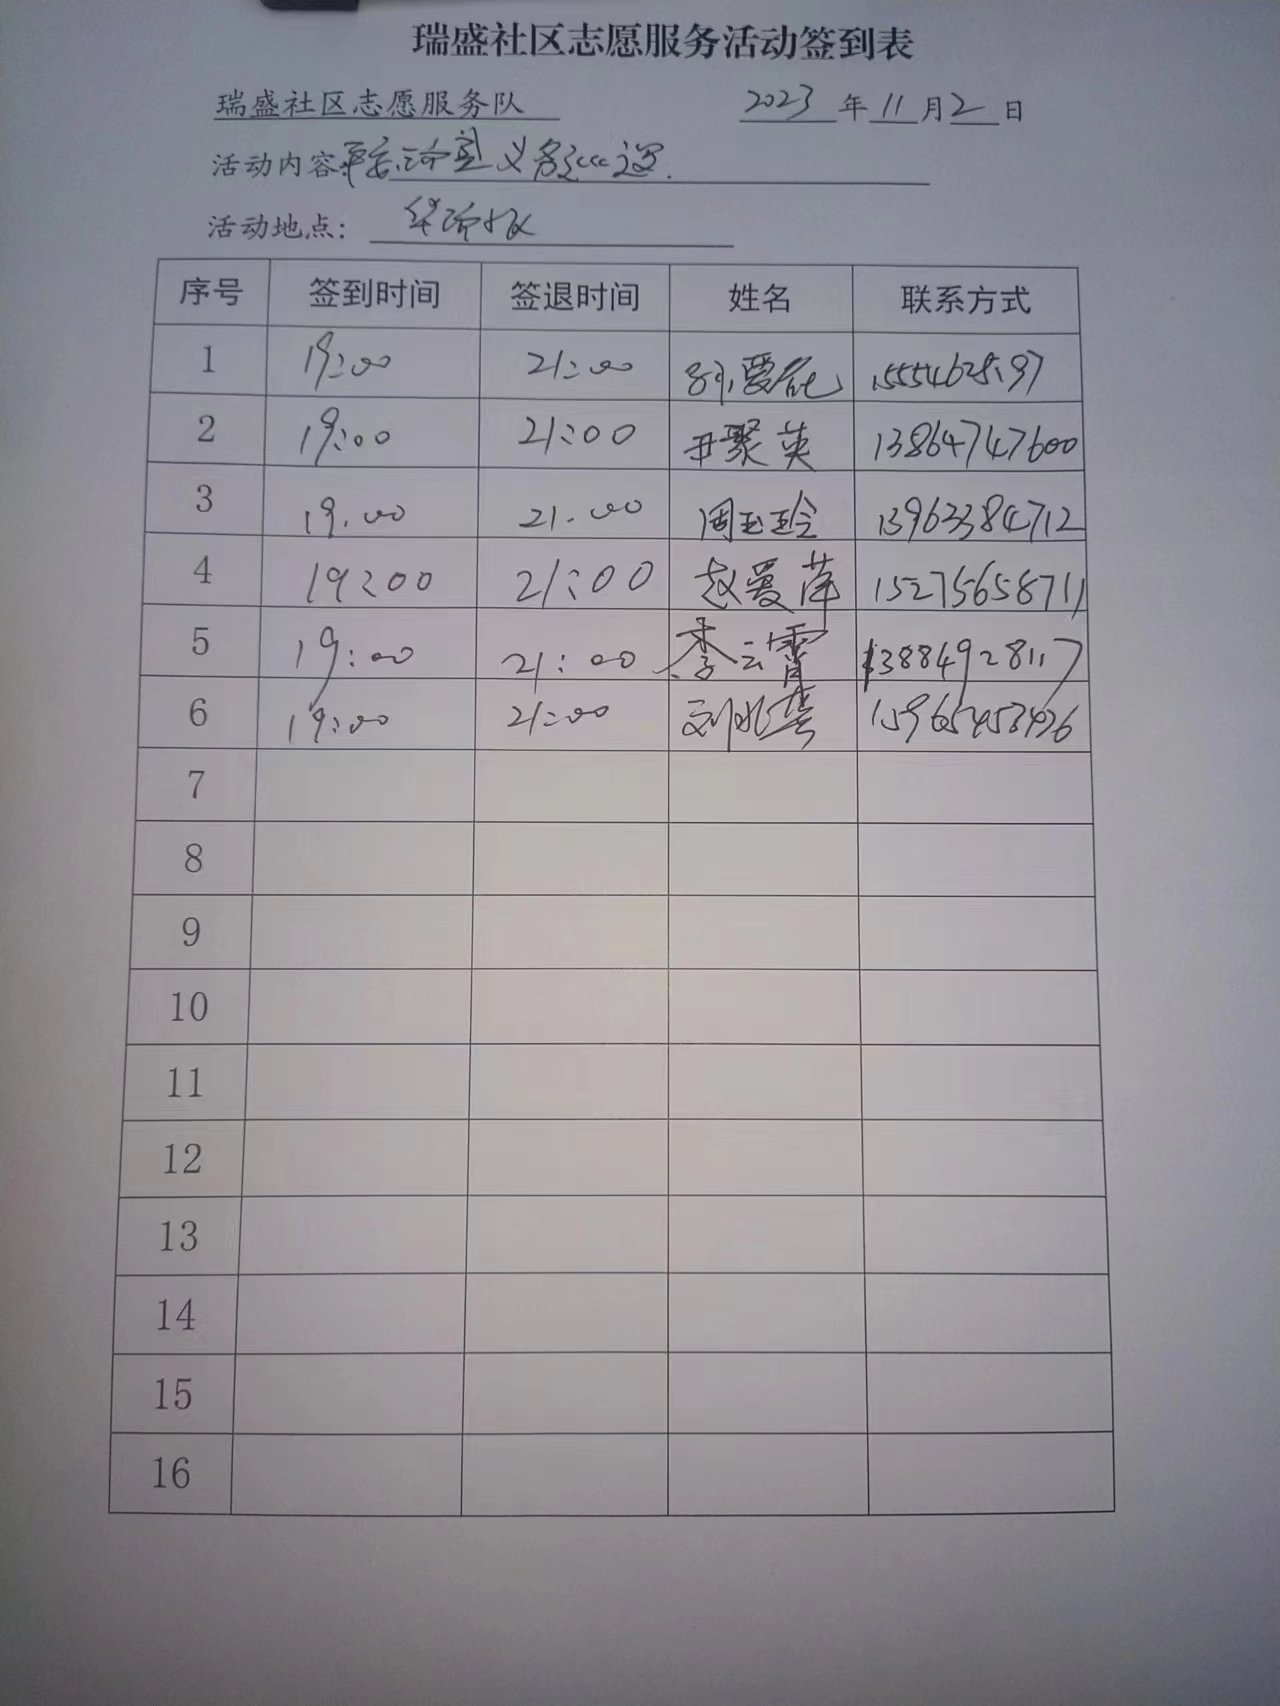 瑞盛社区志愿服务活动签到表
瑞盛社区志愿服务队 2023 年 11 月 2 日
活动内容 义务
活动地点：
序号 签到时间 签退时间 姓名 联系方式
1 19:00 21:00
2 19:00 21:00 聚英 13864747600
3 19:00 21:00 周玉玲 13963384712
4 19:00 21:00 赵爱萍 15275658711
5 19:00 21:00 李云霄 13884928117
6 19:00 21:00 刘
7
8
9
10
11
12
13
14
15
16